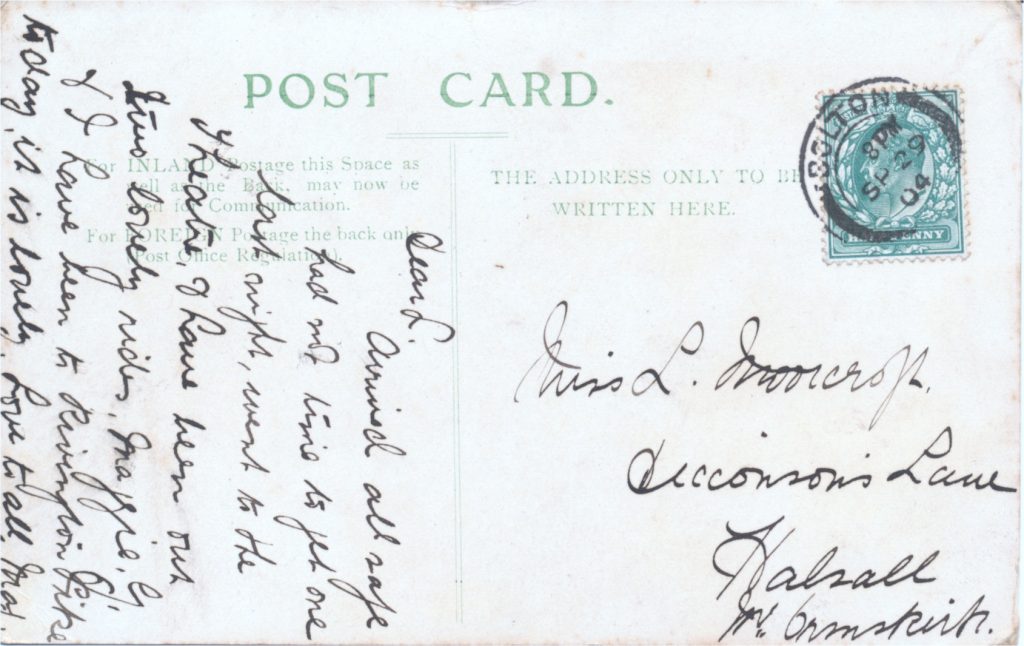 POST CARD.
For INLAND Postage this Space as
well as the Back, may now be
used for Communication.
For FOREIGN Postage the back only
(Post Office Regulation).
THE ADDRESS ONLY TO BE
WRITTEN HERE.
BOLTON
8 PM
SP 29
04
HALFPENNY
Dear L.
Arrived all safe
had no time to get one
last night, went to the
Theatre, & have been out
two lovely rides, Maggie, G,
& I have been to Rivington Pike
to day it is lovely, Love to all
Miss L. Moorcroft.
Dicconson's Lane
Halsall
Nr Ormskirk.